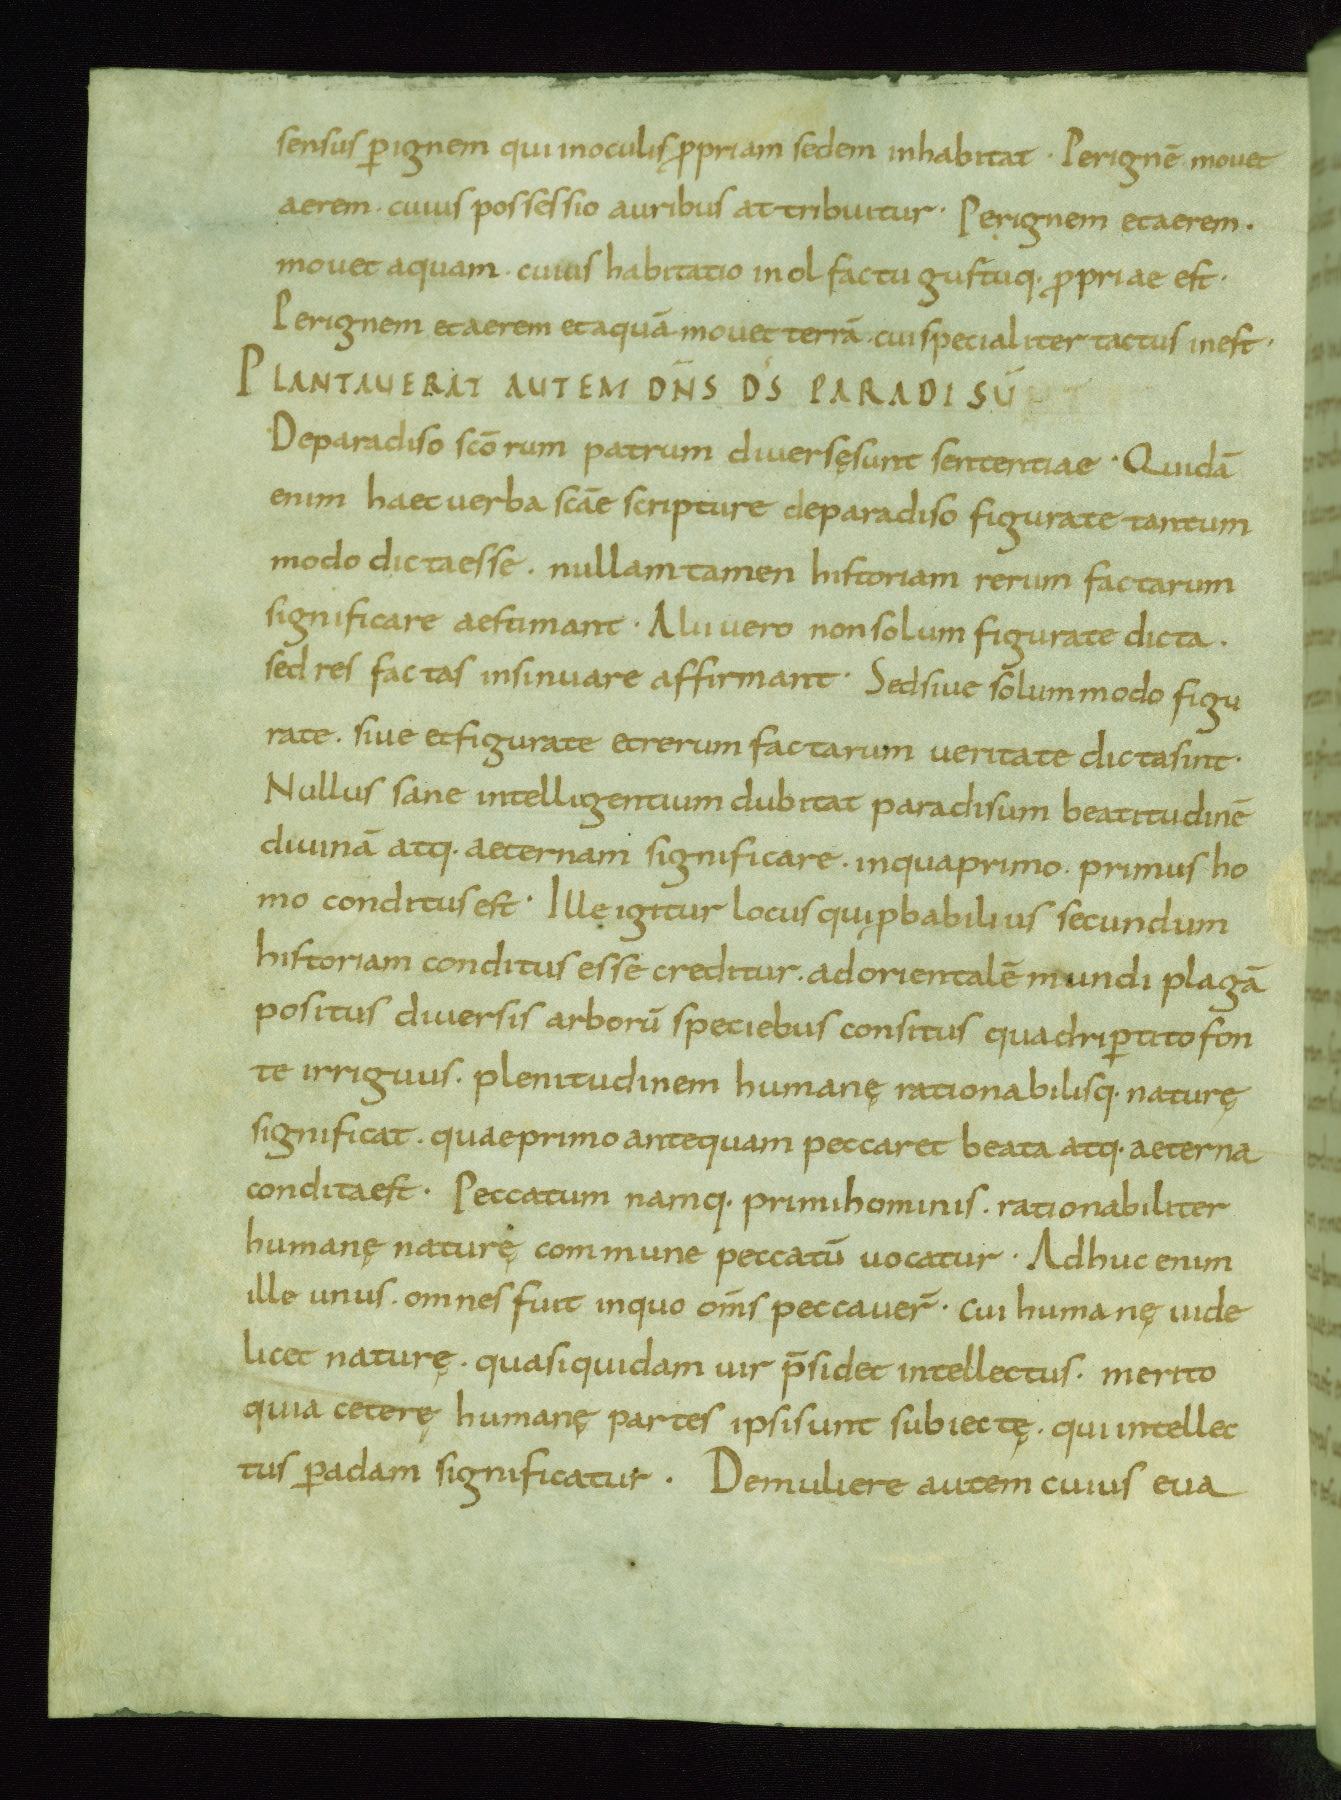 sensus ꝑ ignem qui inoculis ꝓpriam sedem inhabitat · Perignē mouet
aerem · cuius possessio auribus attribuitur · Perignem et aerem ·
mouet aquam · cuius habitatio inolfactu gustuq· ꝓpriae est ·
Perignem et aerem et aquā mouet terrā · cui specialiter tactus inest ·
PLANTAUERAT AUTEM DN̄S D̄S PARADISŪ
Deparadiso scōrum patrum diuersę sunt sententiae · Quidā
enim haec uerba scāe scripture deparadiso figurate tantum
modo dicta esse · nullam tamen historiam rerum factarum
significare aestimant · Alii uero non solum figurate dicta ·
sed res factas insinuare affirmant · Sed siue solummodo figu
rate · siue et figurate et rerum factarum ueritate dicta sint ·
Nullus sane intelligentium dubitat paradisum beatitudinē
diuinā atq· aeternam significare · inqua primo · primus ho
mo conditus est · Ille igitur locus qui ꝓbabilius secundum
historiam conditus esse creditur · ad orientalē mundi plagā
positus diuersis arborū speciebus consitus quadriꝑtito fon
te irriguus · plenitudinem humanę rationabilisq· naturę
significat · quae primo antequam peccaret beata atq· aeterna
condita est · Peccatum namq· primi hominis · rationabiliter
humanę naturę commune peccatū uocatur · Adhuc enim
ille unus · omnes fuit inquo om̄s peccauer̄ · cui humanę uide
licet naturę · quasi quidam uir p̄sidet intellectus · merito
quia ceterę humanę partes ipsi sunt subiectę · qui intellec
tus ꝑ adam significatur · Demuliere autem cuius eua